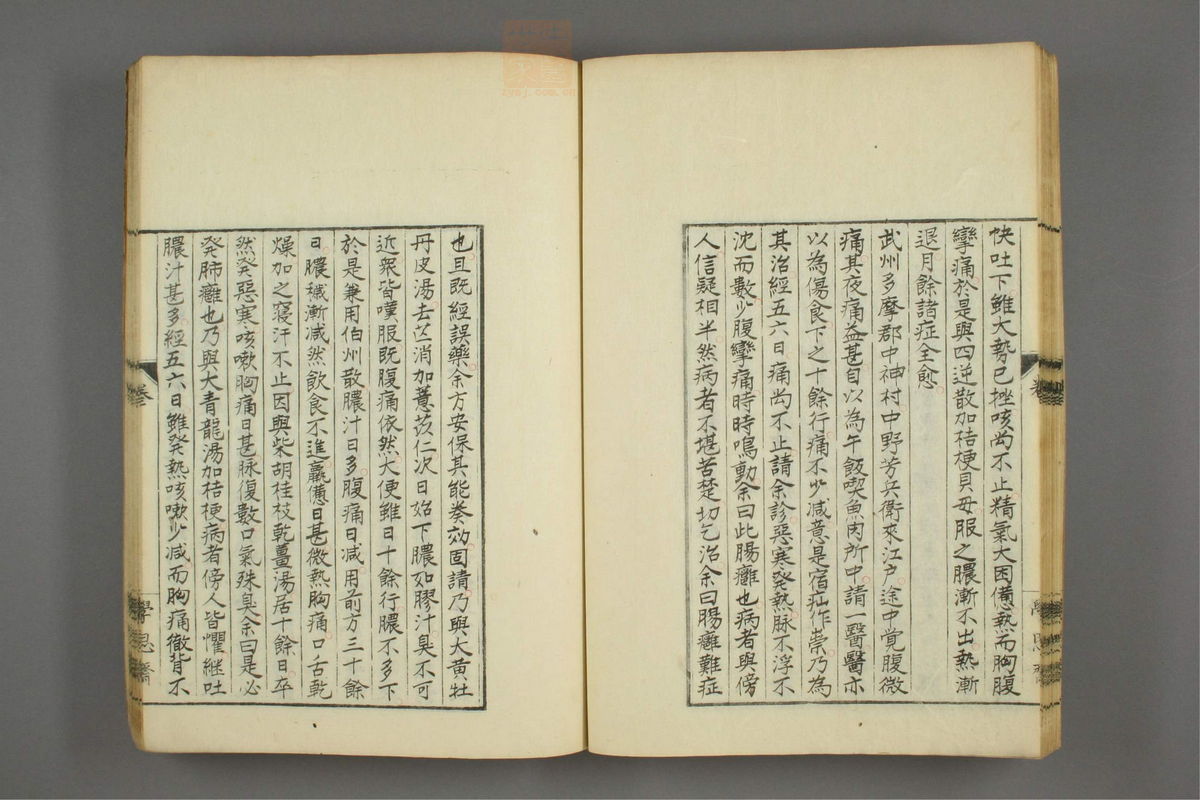 快吐下雖大勢已挫咳尚不止精氣大困憊熱而胸腹
攣痛於是與四逆散加桔梗貝母服之膿漸不出熱漸
退月餘諸症全愈
武州多摩郡中神村中野芳兵衛來江戸途中覚腹微
痛其夜痛益甚自以為午飯喫魚肉所中請一醫醫亦
以為傷食下之十餘行痛不少減意是宿疝作祟乃為
其治經五六日痛尚不止請余診惡寒発熱脉不浮不
沈而數少腹攣痛時時鳴動余曰此腸癰也病者與傍
人信疑相半然病者不堪苦楚切乞治余曰腸癰難症
也且既經誤藥余方安保其能奏効固請乃與大黄牡
丹皮湯去芒消加薏苡仁次日始下膿如膠汁臭不可
近衆皆嘆服既腹痛依然大便雖日十餘行膿不多下
於是兼用伯州散膿汁日多腹痛日減用前方三十餘
日膿穢漸減然飲食不進羸憊日甚微熱胸痛口舌乾
燥加之寝汗不止因與柴胡桂枝乾薑湯居十餘日卒
然発惡寒咳嗽胸痛日甚脉復數口氣殊臭余曰是必
発肺癰也乃與大青龍湯加桔梗病者傍人皆懼継吐
膿汁甚多經五六日雖発熱咳嗽少减而胸痛徹背不
卷
學思齋
zysj.com.cn